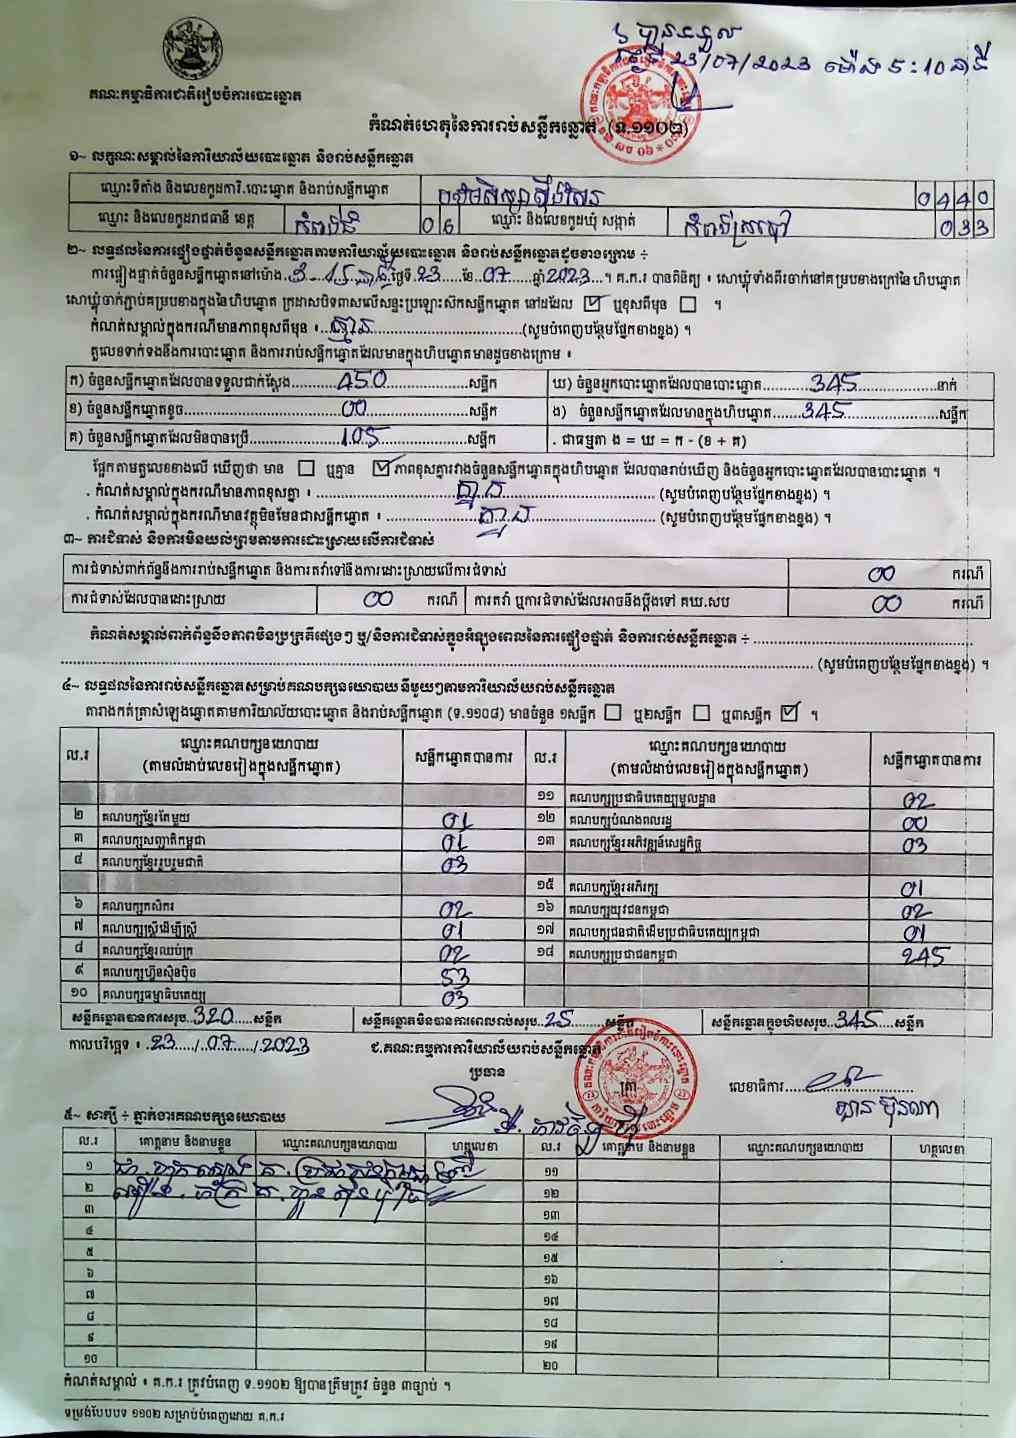 បានទទួល
ថ្ងៃទី 23/07/2023 ម៉ោង 5:10 នាទី
គណៈកម្មាធិការជាតិរៀបចំការបោះឆ្នោត
កំណត់ហេតុនៃការរាប់សន្លឹកឆ្នោត (ទ.១១០២)
១~ លក្ខណៈសម្គាល់នៃការិយាល័យបោះឆ្នោត និងរាប់សន្លឹកឆ្នោត
ឈ្មោះទីតាំង និងលេខកូដការិ.បោះឆ្នោត និងរាប់សន្លឹកឆ្នោត 0440
ឈ្មោះ និងលេខកូដរាជធានី ខេត្ត កំពង់ធំ 06 ឈ្មោះ និងលេខកូដឃុំ សង្កាត់ 033
២~ លទ្ធផលនៃការផ្ទៀងផ្ទាត់ចំនួនសន្លឹកឆ្នោតតាមការិយាល័យបោះឆ្នោត និងរាប់សន្លឹកឆ្នោតដូចខាងក្រោម ÷
ការផ្ទៀងផ្ទាត់ចំនួនសន្លឹកឆ្នោតនៅម៉ោង 3:15 នាទី ថ្ងៃទី.23 ខែ.07 ឆ្នាំ 2023 ។ គ.ក.រ បានពិនិត្យ ៖ សោឃ្លុំទាំងពីរចាក់នៅគម្របខាងក្រៅនៃ ហិបឆ្នោត
សោឃ្លុំចាក់ភ្ជាប់គម្របខាងក្នុងនៃហិបឆ្នោត ក្រដាសបិទពាសលើសន្ទះប្រឡោះស៊កសន្លឹកឆ្នោត នៅដដែល ☑ ឬខុសពីមុន ☐ ។
កំណត់សម្គាល់ក្នុងករណីមានភាពខុសពីមុន ៖ គ្មាន (សូមបំពេញបន្ថែមផ្នែកខាងខ្នង) ។
តួលេខទាក់ទងនឹងការបោះឆ្នោត និងការរាប់សន្លឹកឆ្នោតដែលមានក្នុងហិបឆ្នោតមានដូចខាងក្រោម ៖
ក) ចំនួនសន្លឹកឆ្នោតដែលបានទទួលជាក់ស្តែង 450 សន្លឹក ឃ) ចំនួនអ្នកបោះឆ្នោតដែលបានបោះឆ្នោត 345 នាក់
ខ) ចំនួនសន្លឹកឆ្នោតខូច 00 សន្លឹក ង) ចំនួនសន្លឹកឆ្នោតដែលមានក្នុងហិបឆ្នោត 345 សន្លឹក
គ) ចំនួនសន្លឹកឆ្នោតដែលមិនបានប្រើ 105 សន្លឹក . ជាធម្មតា ង = ឃ = ក - (ខ + គ)
ផ្អែកតាមតួលេខខាងលើ ឃើញថា មាន ☐ ឬគ្មាន ☑ ភាពខុសគ្នារវាងចំនួនសន្លឹកឆ្នោតក្នុងហិបឆ្នោត ដែលបានរាប់ឃើញ និងចំនួនអ្នកបោះឆ្នោតដែលបានបោះឆ្នោត ។
. កំណត់សម្គាល់ក្នុងករណីមានភាពខុសគ្នា ៖ គ្មាន (សូមបំពេញបន្ថែមផ្នែកខាងខ្នង) ។
. កំណត់សម្គាល់ក្នុងករណីមានវត្ថុមិនមែនជាសន្លឹកឆ្នោត ៖ គ្មាន (សូមបំពេញបន្ថែមផ្នែកខាងខ្នង) ។
៣~ ការជំទាស់ និងការមិនយល់ព្រមតាមការដោះស្រាយលើការជំទាស់
ការជំទាស់ពាក់ព័ន្ធនឹងការរាប់សន្លឹកឆ្នោត និងការតវ៉ាទៅនឹងការដោះស្រាយលើការជំទាស់ 00 ករណី
ការជំទាស់ដែលបានដោះស្រាយ 00 ករណី ការតវ៉ា ឬការជំទាស់ដែលអាចនឹងប្តឹងទៅ គឃ.សប 00 ករណី
កំណត់សម្គាល់ពាក់ព័ន្ធនឹងភាពមិនប្រក្រតីផ្សេងៗ ឬ/និងការជំទាស់ក្នុងអំឡុងពេលនៃការផ្ទៀងផ្ទាត់ និងការរាប់សន្លឹកឆ្នោត ÷
(សូមបំពេញបន្ថែមផ្នែកខាងខ្នង) ។
៤~ លទ្ធផលនៃការរាប់សន្លឹកឆ្នោតសម្រាប់គណបក្សនយោបាយ នីមួយៗតាមការិយាល័យរាប់សន្លឹកឆ្នោត
តារាងកត់ត្រាសំឡេងឆ្នោតតាមការិយាល័យបោះឆ្នោត និងរាប់សន្លឹកឆ្នោត (ទ.១១០៨) មានចំនួន ១សន្លឹក ☐ ឬ២សន្លឹក ☐ ឬ៣សន្លឹក ☑ ។
ល.រ ឈ្មោះគណបក្សនយោបាយ (តាមលំដាប់លេខរៀងក្នុងសន្លឹកឆ្នោត) សន្លឹកឆ្នោតបានការ ល.រ ឈ្មោះគណបក្សនយោបាយ (តាមលំដាប់លេខរៀងក្នុងសន្លឹកឆ្នោត) សន្លឹកឆ្នោតបានការ
១១ គណបក្សប្រជាធិបតេយ្យមូលដ្ឋាន 02
២ គណបក្សខ្មែរតែមួយ 01 ១២ គណបក្សបំណងពលរដ្ឋ 00
៣ គណបក្សសញ្ជាតិកម្ពុជា 01 ១៣ គណបក្សខ្មែរអភិវឌ្ឍន៍សេដ្ឋកិច្ច 03
៤ គណបក្សខ្មែររួបរួមជាតិ 03
១៥ គណបក្សខ្មែរអភិរក្ស 01
៦ គណបក្សកសិករ 02 ១៦ គណបក្សយុវជនកម្ពុជា 02
៧ គណបក្សស្ត្រីដើម្បីស្ត្រី 01 ១៧ គណបក្សជនជាតិដើមប្រជាធិបតេយ្យកម្ពុជា 01
៨ គណបក្សខ្មែរឈប់ក្រ 02 ១៨ គណបក្សប្រជាជនកម្ពុជា 245
៩ គណបក្សហ្វ៊ុនស៊ិនប៉ិច 53
១០ គណបក្សធម្មាធិបតេយ្យ 03
សន្លឹកឆ្នោតបានការសរុប 320 សន្លឹក សន្លឹកឆ្នោតមិនបានការពេលរាប់សរុប 25 សន្លឹក សន្លឹកឆ្នោតក្នុងហិបសរុប 345 សន្លឹក
កាលបរិច្ឆេទ ៖ 23 / 07 / 2023 ជ.គណៈកម្មការការិយាល័យរាប់សន្លឹកឆ្នោត
ប្រធាន ត្រា លេខាធិការ
៥~ សាក្សី ÷ ភ្នាក់ងារគណបក្សនយោបាយ
ល.រ គោត្តនាម និងនាមខ្លួន ឈ្មោះគណបក្សនយោបាយ ហត្ថលេខា ល.រ គោត្តនាម និងនាមខ្លួន ឈ្មោះគណបក្សនយោបាយ ហត្ថលេខា
១ ១១
២ ១២
៣ ១៣
៤ ១៤
៥ ១៥
៦ ១៦
៧ ១៧
៨ ១៨
៩ ១៩
១០ ២០
កំណត់សម្គាល់ ៖ គ.ក.រ ត្រូវបំពេញ ទ.១១០២ ឱ្យបានត្រឹមត្រូវ ចំនួន ៣ច្បាប់ ។
ទម្រង់បែបបទ ១១០២ សម្រាប់បំពេញដោយ គ.ក.រ